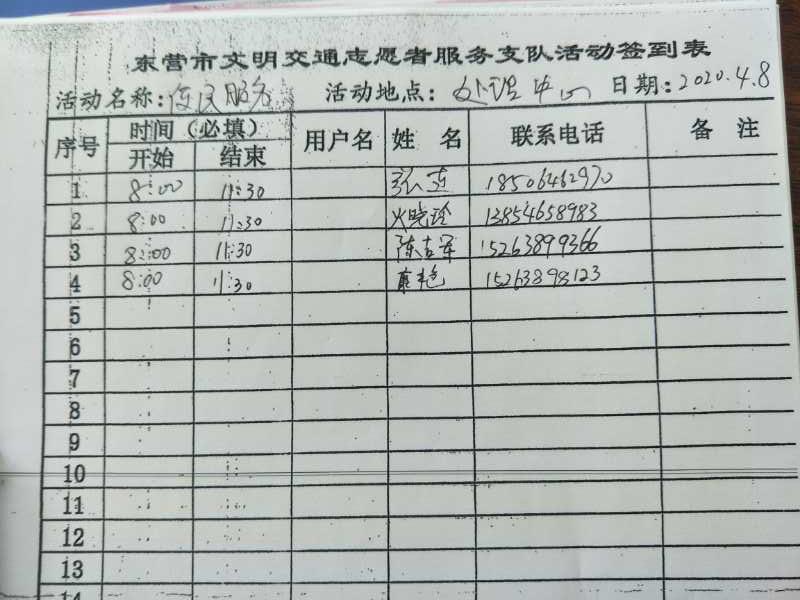 东营市文明交通志愿者服务支队活动签到表
活动名称：便民服务 活动地点：处理中心 日期：2020.4.8
序号 时间（必填） 用户名 姓 名 联系电话 备 注
开始 结束
1 8:00 11:30 张 18506462970
2 8:00 11:30 火晓玲 13854658983
3 8:00 11:30 陈吉军 15263899366
4 8:00 11:30 艳 15263898123
5
6
7
8
9
10
11
12
13
14